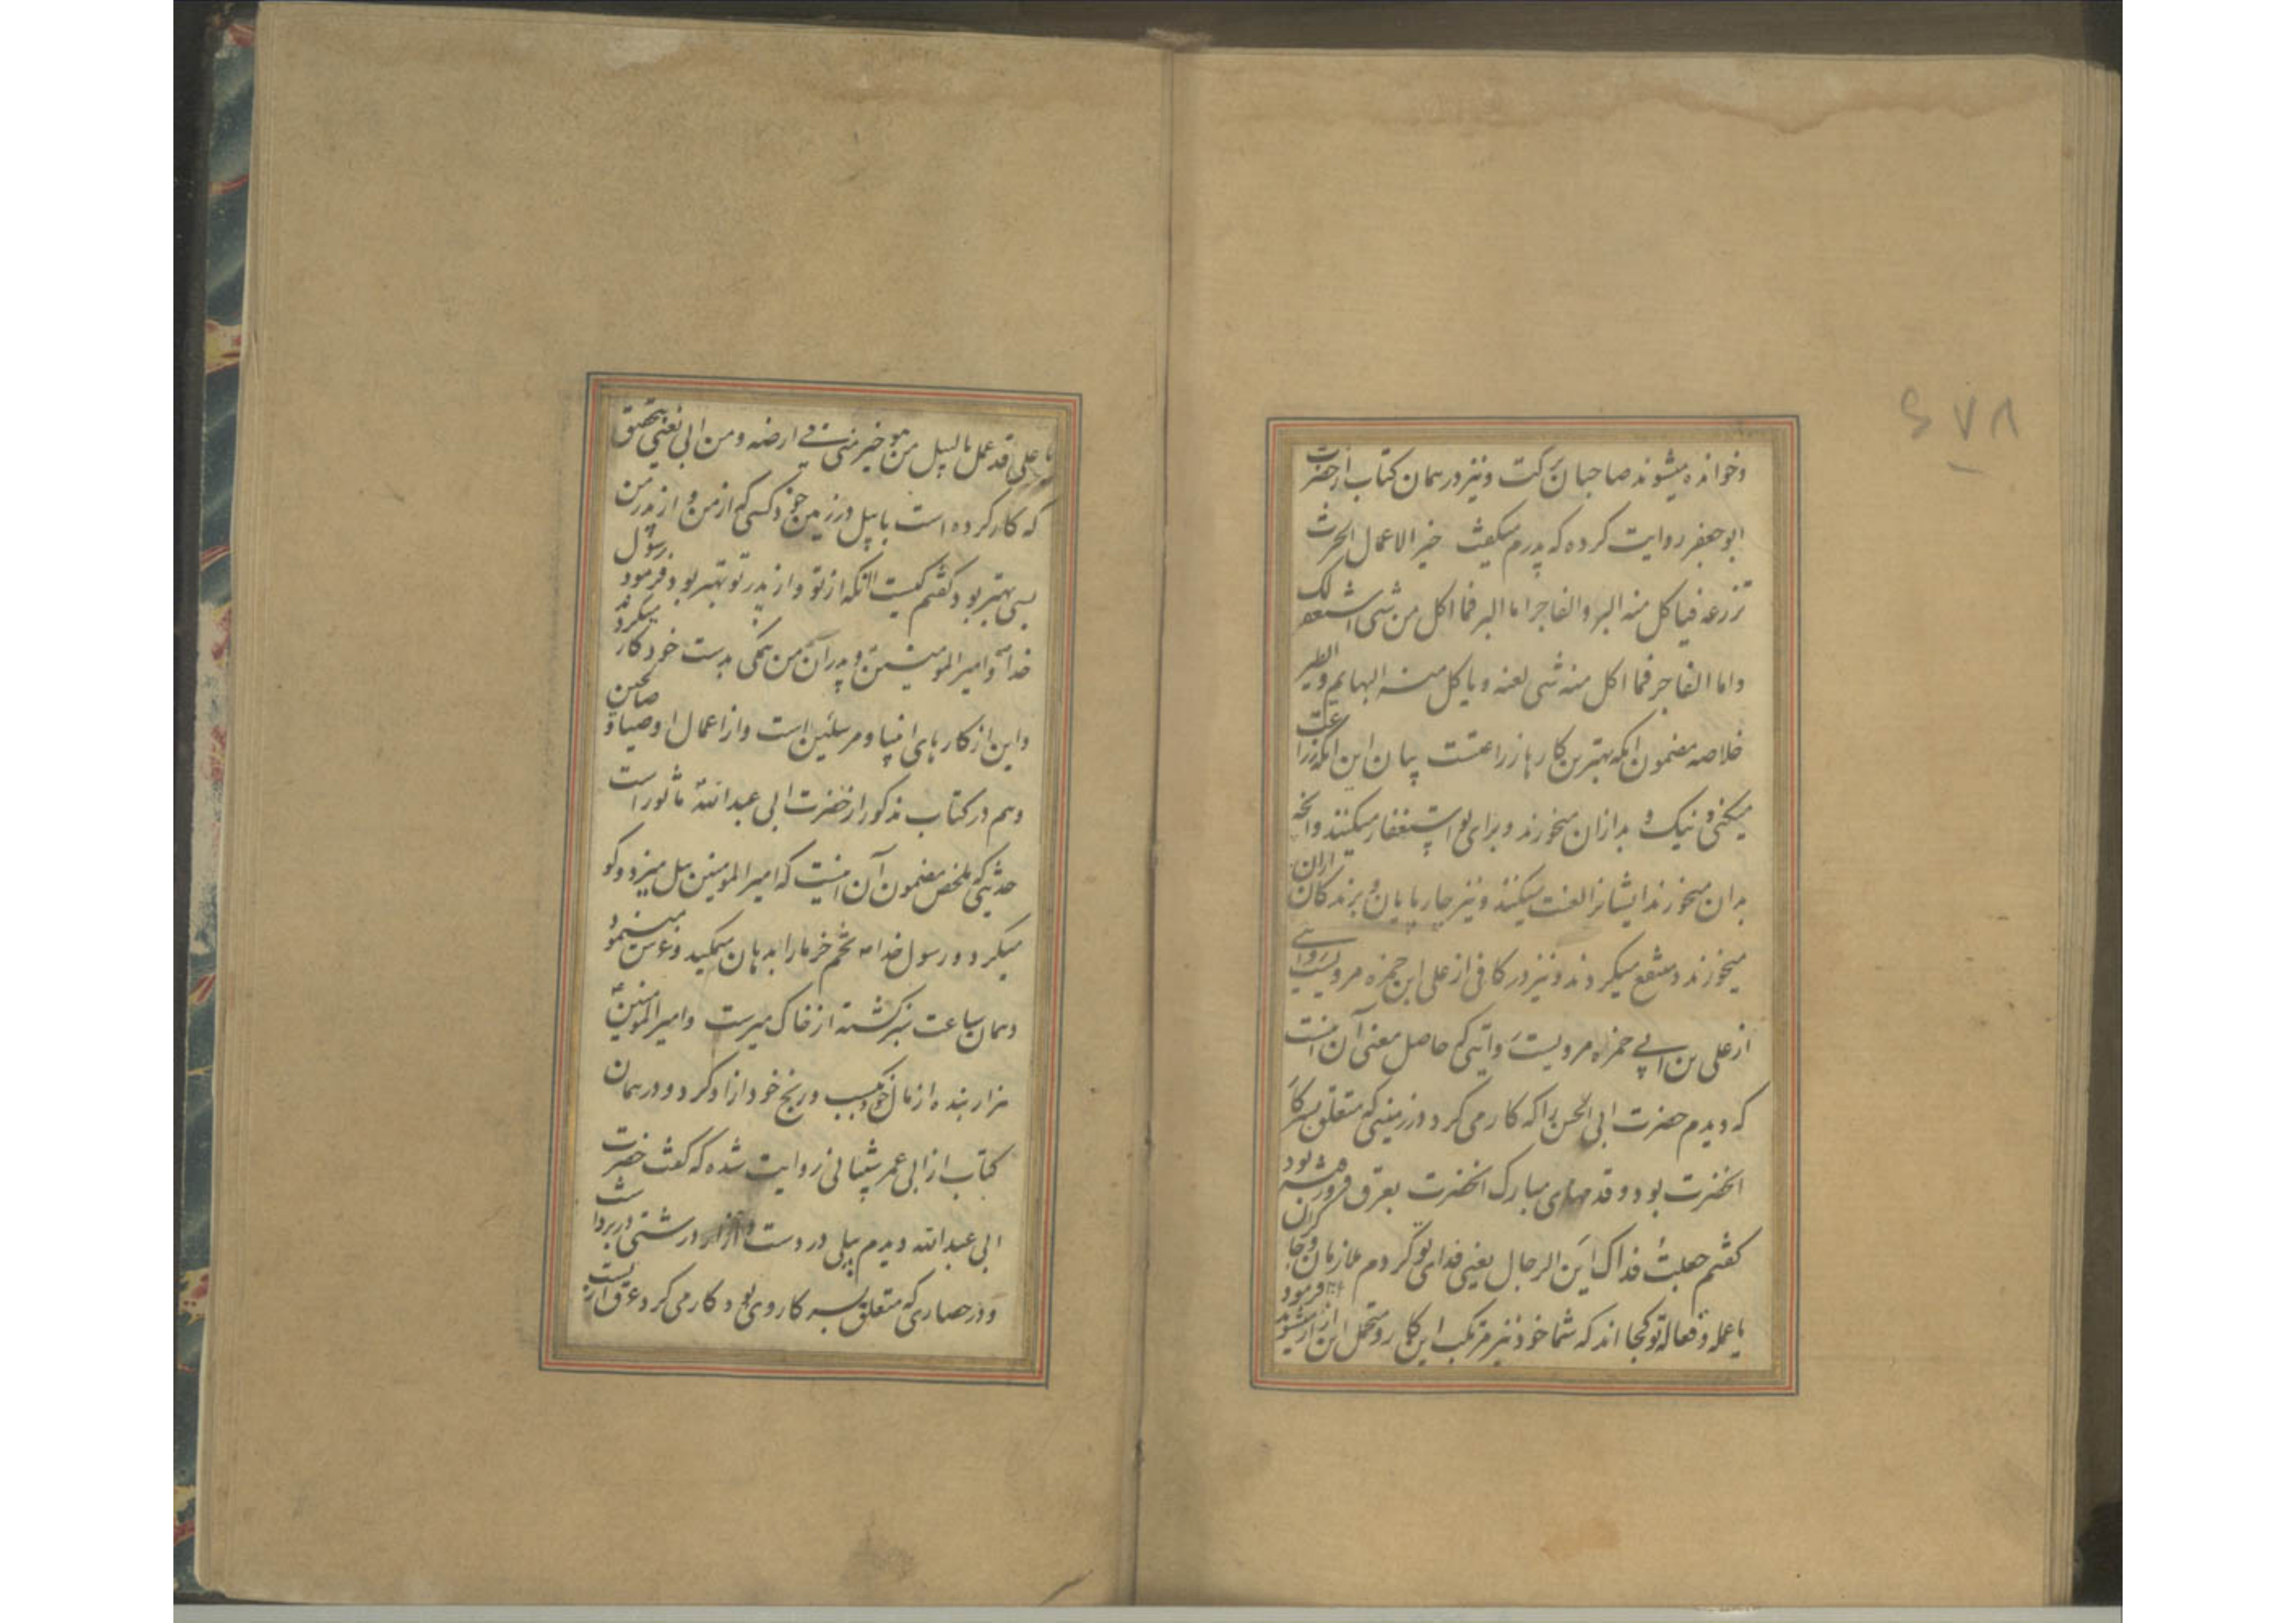 وخوانده میشوند صاحبان برکت ونیز در همان کتاب از حضرت
ابو جعفر روایت کرده که پدرم میگفت خیر الاعمال الحرث
تزرعه فیاکل منه البر والفاجر اما البر فما اکل من شی استغفر لک
واما الفاجر فما اکل منه شی لعنه ویاکل منه البهایم والطیر
خلاصه مضمون انکه بهترین کارها زراعتست بیان این انکه زراعت
میکنی و نیک و بد ازان میخورند وبرای تو استغفار میکنند وانچه
بدان میخورند ایشانرا لعنت میکنند ونیز چارپایان و پرندکان ازان
میخورند ومنتفع میکردند ونیز در کافی از علی ابن حمزه مرویست
از علی بن ابی حمزه مرویست روایتی که حاصل معنی آن اینست
که دیدم حضرت ابی الحسن را که کار می کرد در زمینی که متعلق بسرکار
انحضرت بود و قدمهای مبارک انحضرت بعرق فرو رفته بود
کفتم جعلت فداک این الرجال یعنی فدای تو کردم ملازمان و چاکران
یا عمله و فعاله تو کجا اند که شما خود نیز مرتکب این کار و متحمل این ازار میشوید فرمود
۶۷۸
یا علی قد عمل بالبیل من هو خیر منی فی ارضه ومن ابی یعنی بتحقیق
که کار کرده است با بیل در زمین خود کسی که از من و از پدر من
بسی بهتر بود کفتم کیست انکه از تو و از پدر تو بهتر بود فرمود رسول
خدا و امیر المومنین و پدران من همکی بدست خود کار میکردند
واین از کارهای انبیا و مرسلین است واز اعمال اوصیا و صالحین
وهم در کتاب مذکور از حضرت ابی عبدالله ماثور است
حدیثی که ملخص مضمون آن اینست که امیر المومنین بیل میزد وکو
میکرد و رسول خدا تخم خرما را بدهان میمکید وغرس مینمود
وهمان ساعت سبز کشته از خاک میرست وامیر المومنین
هزار بنده از مال خود وکسب و رنج خود ازاد کرد و در همان
کتاب از ابی عمر شیبانی روایت شده که کفت حضرت
ابی عبدالله دیدم بیلی در دست و ازار درشتی در بر داشت
و در حصاری که متعلق بسرکار وی بود کار می کرد وعرق از